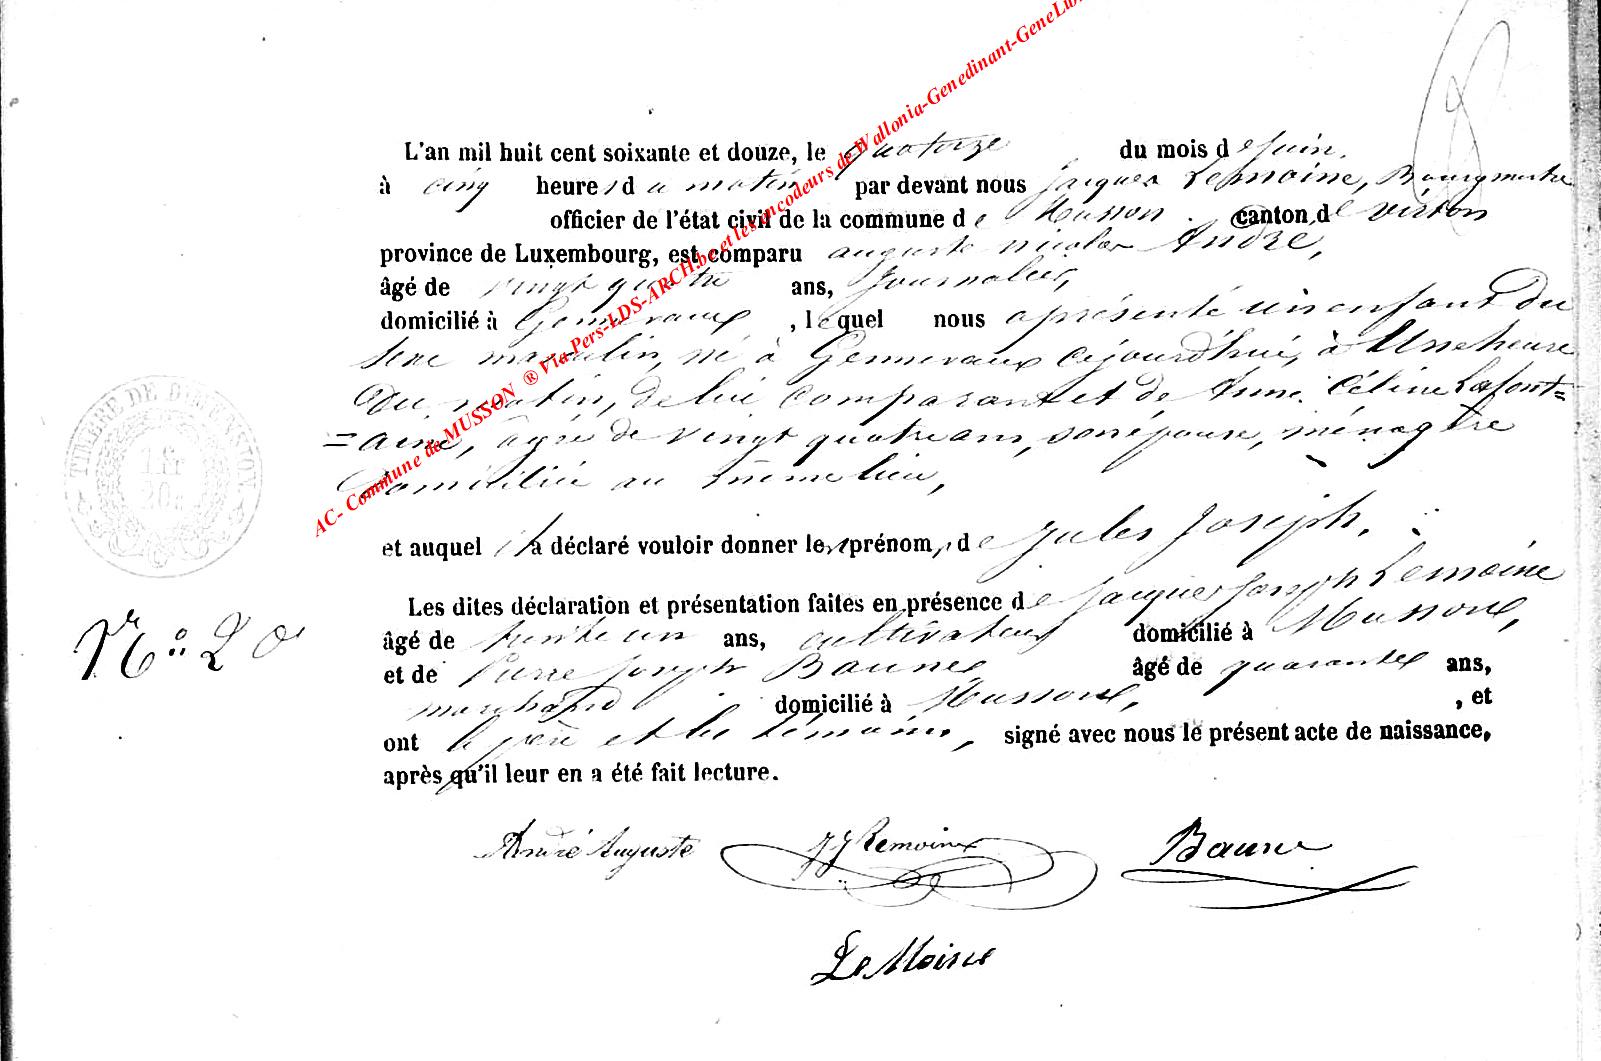 AC- Commune de MUSSON ® Via Pers-LDS-ARCH.be et les encodeurs de Wallonia-Genedinant-GeneLux
L'an mil huit cent soixante et douze, le quatorze du mois de Juin,
à cinq heures du matin par devant nous Jacques Lemoine, Bourgmestre
officier de l'état civil de la commune de Musson. canton de Virton
province de Luxembourg, est comparu auguste nicolas André,
âgé de vingt quatre ans, Journalier,
domicilié à Gennevaux, lequel nous a présenté un enfant Du
sexe masculin, né à Gennevaux cejourd'hui, à Une heure
Du matin, de lui comparant et de Anne Céline Lafont=
=aine, âgée de vingt quatre ans, son épouse, ménagère
Domiciliée au même lieu,
et auquel il a déclaré vouloir donner les prénoms de Jules Joseph.
Les dites déclaration et présentation faites en présence de Jacques Joseph Lemoine
âgé de trente un ans, cultivateur domicilié à Musson,
et de Pierre Joseph Baune âgé de quarante ans,
marchand domicilié à Musson, , et
ont le père et les témoins, signé avec nous le présent acte de naissance,
après qu'il leur en a été fait lecture.
TIMBRE DE DIMENSION
1 fr
20c
N° 20
André Auguste JJ Lemoine Baune
LeMoine